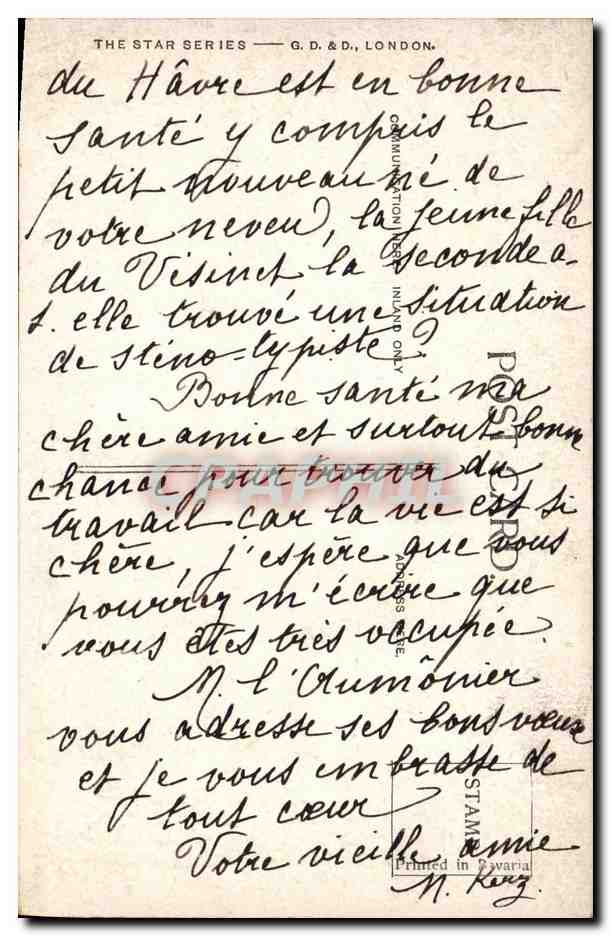 THE STAR SERIES — G. D. & D., LONDON.
du Hâvre est en bonne
santé y compris le
petit nouveau né de
votre neveu, la jeune fille
du Visinet la seconde a-
t. elle trouvé une situation
de sténo-typiste?
Bonne santé ma
chère amie et surtout bonne
chance pour trouver du
travail car la vie est si
chère, j'espère que vous
pourrez m'écrire que
vous êtes très occupée.
M. l'Aumônier
vous adresse ses bons vœux
et je vous embrasse de
tout cœur
Votre vieille amie
M. Kerz.
COMMUNICATION HERE INLAND ONLY
POST CARD
ADDRESS HERE.
STAMP
Printed in Bavaria
CPAPHIL